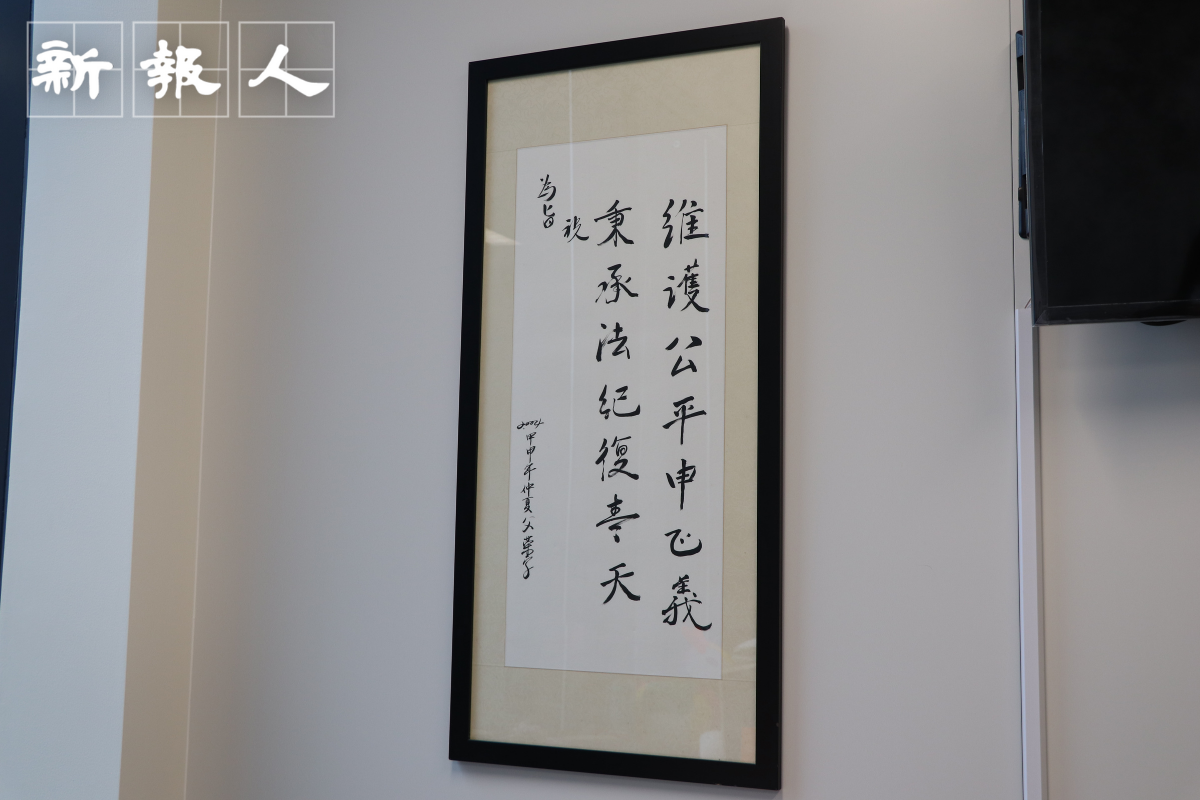 新報人
維護公平申正義
秉承法紀復青天
祝
為旨
2004 甲申年仲夏父榮字